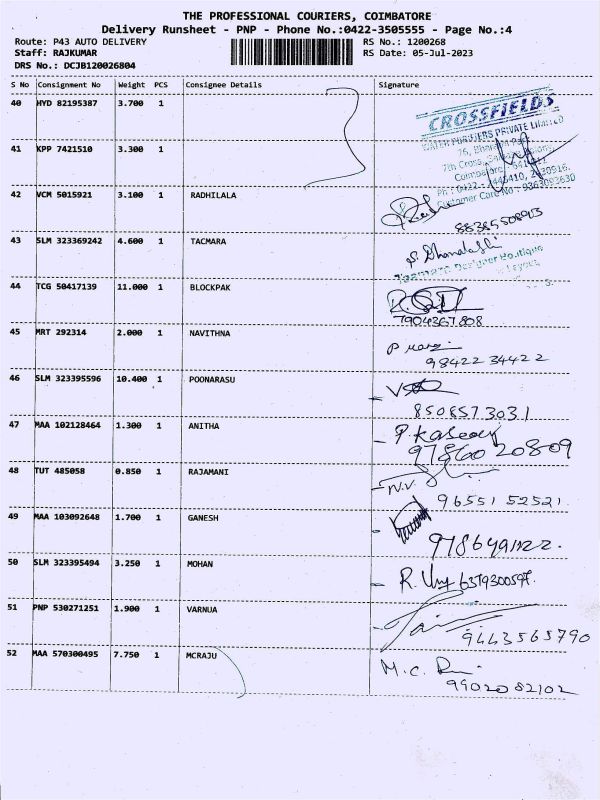 THE PROFESSIONAL COURIERS, COIMBATORE
Delivery Runsheet - PNP - Phone No.:0422-3505555 - Page No.:4
Route: P43 AUTO DELIVERY RS No.: 1200268
Staff: RAJKUMAR RS Date: 05-Jul-2023
DRS No.: DCJB120026804
S No Consignment No Weight PCS Consignee Details Signature
40 HYD 82195387 3.700 1
CROSSFIELDS
WATER PURIFIERS PRIVATE LIMITED
41 KPP 7421510 3.300 1
76,
7th Cross,
Coimbatore
Customer Care No : 9363093630
42 VCM 5015921 3.100 1 RADHILALA
43 SLM 323369242 4.600 1 TACMARA
Designer Boutique
44 TCG 50417139 11.000 1 BLOCKPAK
7904367808
45 MRT 292314 2.000 1 NAVITHNA
98422 34422
46 SLM 323395596 10.400 1 POONARASU
8508573031
47 MAA 102128464 1.300 1 ANITHA
9786020809
48 TUT 485058 0.850 1 RAJAMANI
N.V.
96551 52521
49 MAA 103092648 1.700 1 GANESH
50 SLM 323395494 3.250 1 MOHAN
6379300597.
51 PNP 530271251 1.900 1 VARNUA
9443565790
52 MAA 570300495 7.750 1 MCRAJU
M.C.
9902082102